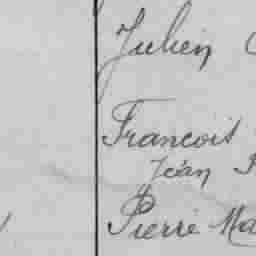 Julien
Francois
Jean
Pierre Ma